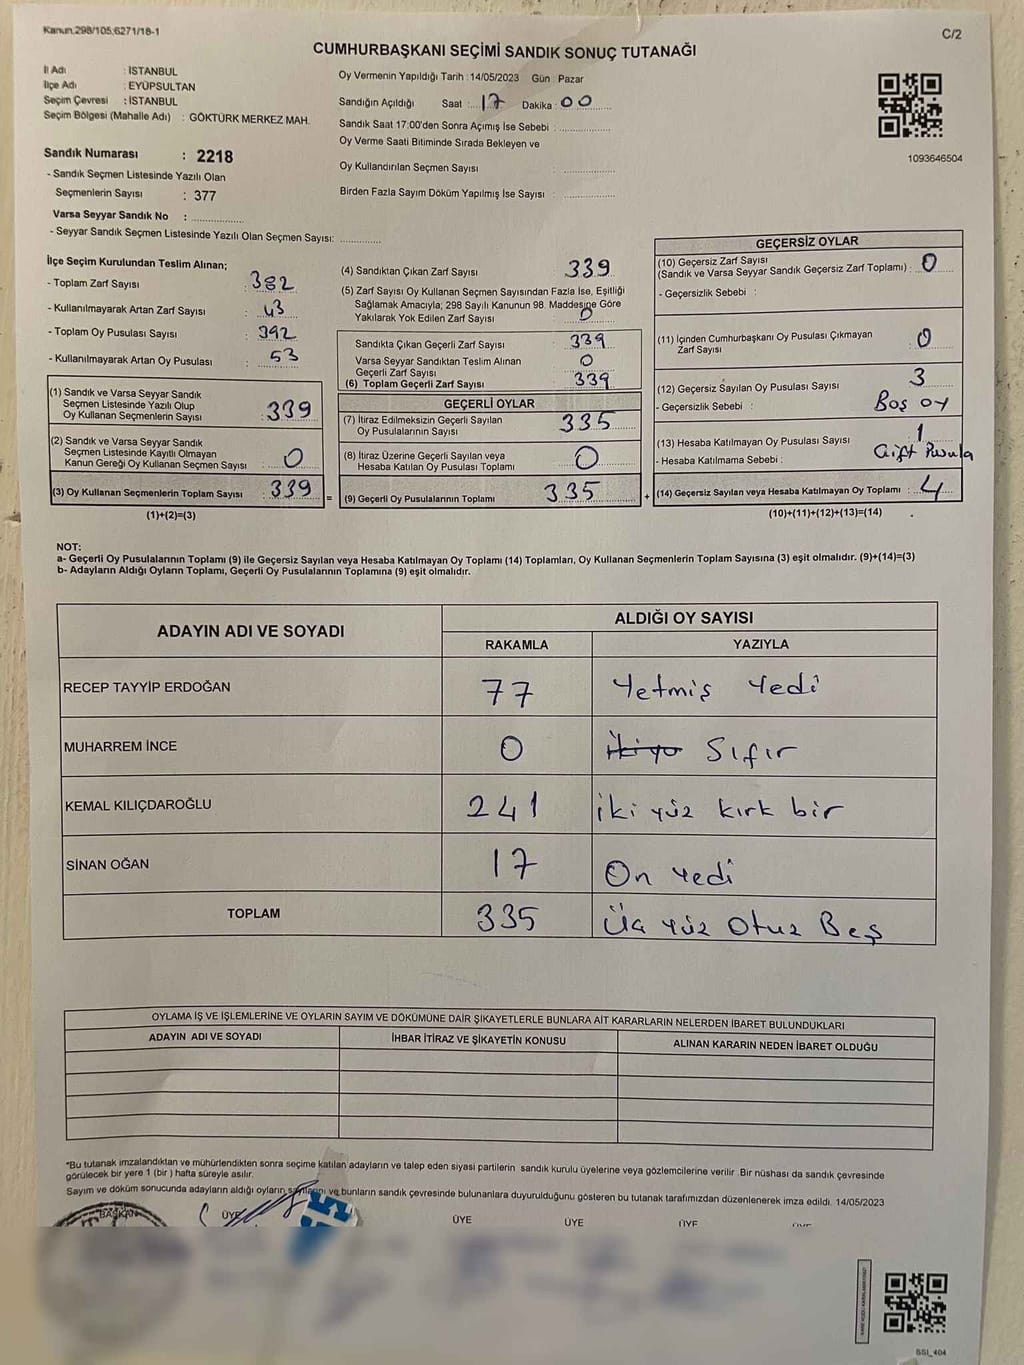 Kanun,298/105,6271/18-1
C/2
CUMHURBAŞKANI SEÇİMİ SANDIK SONUÇ TUTANAĞI
İl Adı : İSTANBUL
İlçe Adı : EYÜPSULTAN
Seçim Çevresi : İSTANBUL
Seçim Bölgesi (Mahalle Adı) : GÖKTÜRK MERKEZ MAH.
Sandık Numarası : 2218
- Sandık Seçmen Listesinde Yazılı Olan
Seçmenlerin Sayısı : 377
Varsa Seyyar Sandık No : ..............
- Seyyar Sandık Seçmen Listesinde Yazılı Olan Seçmen Sayısı: ............
Oy Vermenin Yapıldığı Tarih :14/05/2023 Gün : Pazar
Sandığın Açıldığı Saat : 17 Dakika : 00
Sandık Saat 17:00'den Sonra Açımış İse Sebebi : ..............
Oy Verme Saati Bitiminde Sırada Bekleyen ve
Oy Kullandırılan Seçmen Sayısı : ..............
Birden Fazla Sayım Döküm Yapılmış İse Sayısı : ..............
1093646504
İlçe Seçim Kurulundan Teslim Alınan;
- Toplam Zarf Sayısı : 382
- Kullanılmayarak Artan Zarf Sayısı : 43
- Toplam Oy Pusulası Sayısı : 392
- Kullanılmayarak Artan Oy Pusulası : 53
(1) Sandık ve Varsa Seyyar Sandık
Seçmen Listesinde Yazılı Olup
Oy Kullanan Seçmenlerin Sayısı : 339
(2) Sandık ve Varsa Seyyar Sandık
Seçmen Listesinde Kayıtlı Olmayan
Kanun Gereği Oy Kullanan Seçmen Sayısı : 0
(3) Oy Kullanan Seçmenlerin Toplam Sayısı : 339
(1)+(2)=(3)
=
(4) Sandıktan Çıkan Zarf Sayısı : 339
(5) Zarf Sayısı Oy Kullanan Seçmen Sayısından Fazla İse, Eşitliği
Sağlamak Amacıyla; 298 Sayılı Kanunun 98. Maddesine Göre
Yakılarak Yok Edilen Zarf Sayısı : 0
Sandıkta Çıkan Geçerli Zarf Sayısı : 339
Varsa Seyyar Sandıktan Teslim Alınan
Geçerli Zarf Sayısı : 0
(6) Toplam Geçerli Zarf Sayısı : 339
GEÇERLİ OYLAR
(7) İtiraz Edilmeksizin Geçerli Sayılan
Oy Pusulalarının Sayısı : 335
(8) İtiraz Üzerine Geçerli Sayılan veya
Hesaba Katılan Oy Pusulası Toplamı : 0
(9) Geçerli Oy Pusulalarının Toplamı : 335
+
GEÇERSİZ OYLAR
(10) Geçersiz Zarf Sayısı
(Sandık ve Varsa Seyyar Sandık Geçersiz Zarf Toplamı) : 0
- Geçersizlik Sebebi :
(11) İçinden Cumhurbaşkanı Oy Pusulası Çıkmayan
Zarf Sayısı : 0
(12) Geçersiz Sayılan Oy Pusulası Sayısı : 3
- Geçersizlik Sebebi : Boş oy
(13) Hesaba Katılmayan Oy Pusulası Sayısı : 1
- Hesaba Katılmama Sebebi : Çift Pusula
(14) Geçersiz Sayılan veya Hesaba Katılmayan Oy Toplamı : 4
(10)+(11)+(12)+(13)=(14)
NOT:
a- Geçerli Oy Pusulalarının Toplamı (9) ile Geçersiz Sayılan veya Hesaba Katılmayan Oy Toplamı (14) Toplamları, Oy Kullanan Seçmenlerin Toplam Sayısına (3) eşit olmalıdır. (9)+(14)=(3)
b- Adayların Aldığı Oyların Toplamı, Geçerli Oy Pusulalarının Toplamına (9) eşit olmalıdır.
ADAYIN ADI VE SOYADI
ALDIĞI OY SAYISI
RAKAMLA YAZIYLA
RECEP TAYYİP ERDOĞAN 77 Yetmiş Yedi
MUHARREM İNCE 0 Sıfır
KEMAL KILIÇDAROĞLU 241 iki yüz kırk bir
SİNAN OĞAN 17 On yedi
TOPLAM 335 Üç yüz Otuz Beş
OYLAMA İŞ VE İŞLEMLERİNE VE OYLARIN SAYIM VE DÖKÜMÜNE DAİR ŞİKAYETLERLE BUNLARA AİT KARARLARIN NELERDEN İBARET BULUNDUKLARI
ADAYIN ADI VE SOYADI İHBAR İTİRAZ VE ŞİKAYETİN KONUSU ALINAN KARARIN NEDEN İBARET OLDUĞU
*Bu tutanak imzalandıktan ve mühürlendikten sonra seçime katılan adayların ve talep eden siyasi partilerin sandık kurulu üyelerine veya gözlemcilerine verilir .Bir nüshası da sandık çevresinde
görülecek bir yere 1 (bir ) hafta süreyle asılır.
Sayım ve döküm sonucunda adayların aldığı oyların sayılarını ve bunların sandık çevresinde bulunanlara duyurulduğunu gösteren bu tutanak tarafımızdan düzenlenerek imza edildi. 14/05/2023
BAŞKAN ÜYE ÜYE ÜYE ÜYE
SSI_404